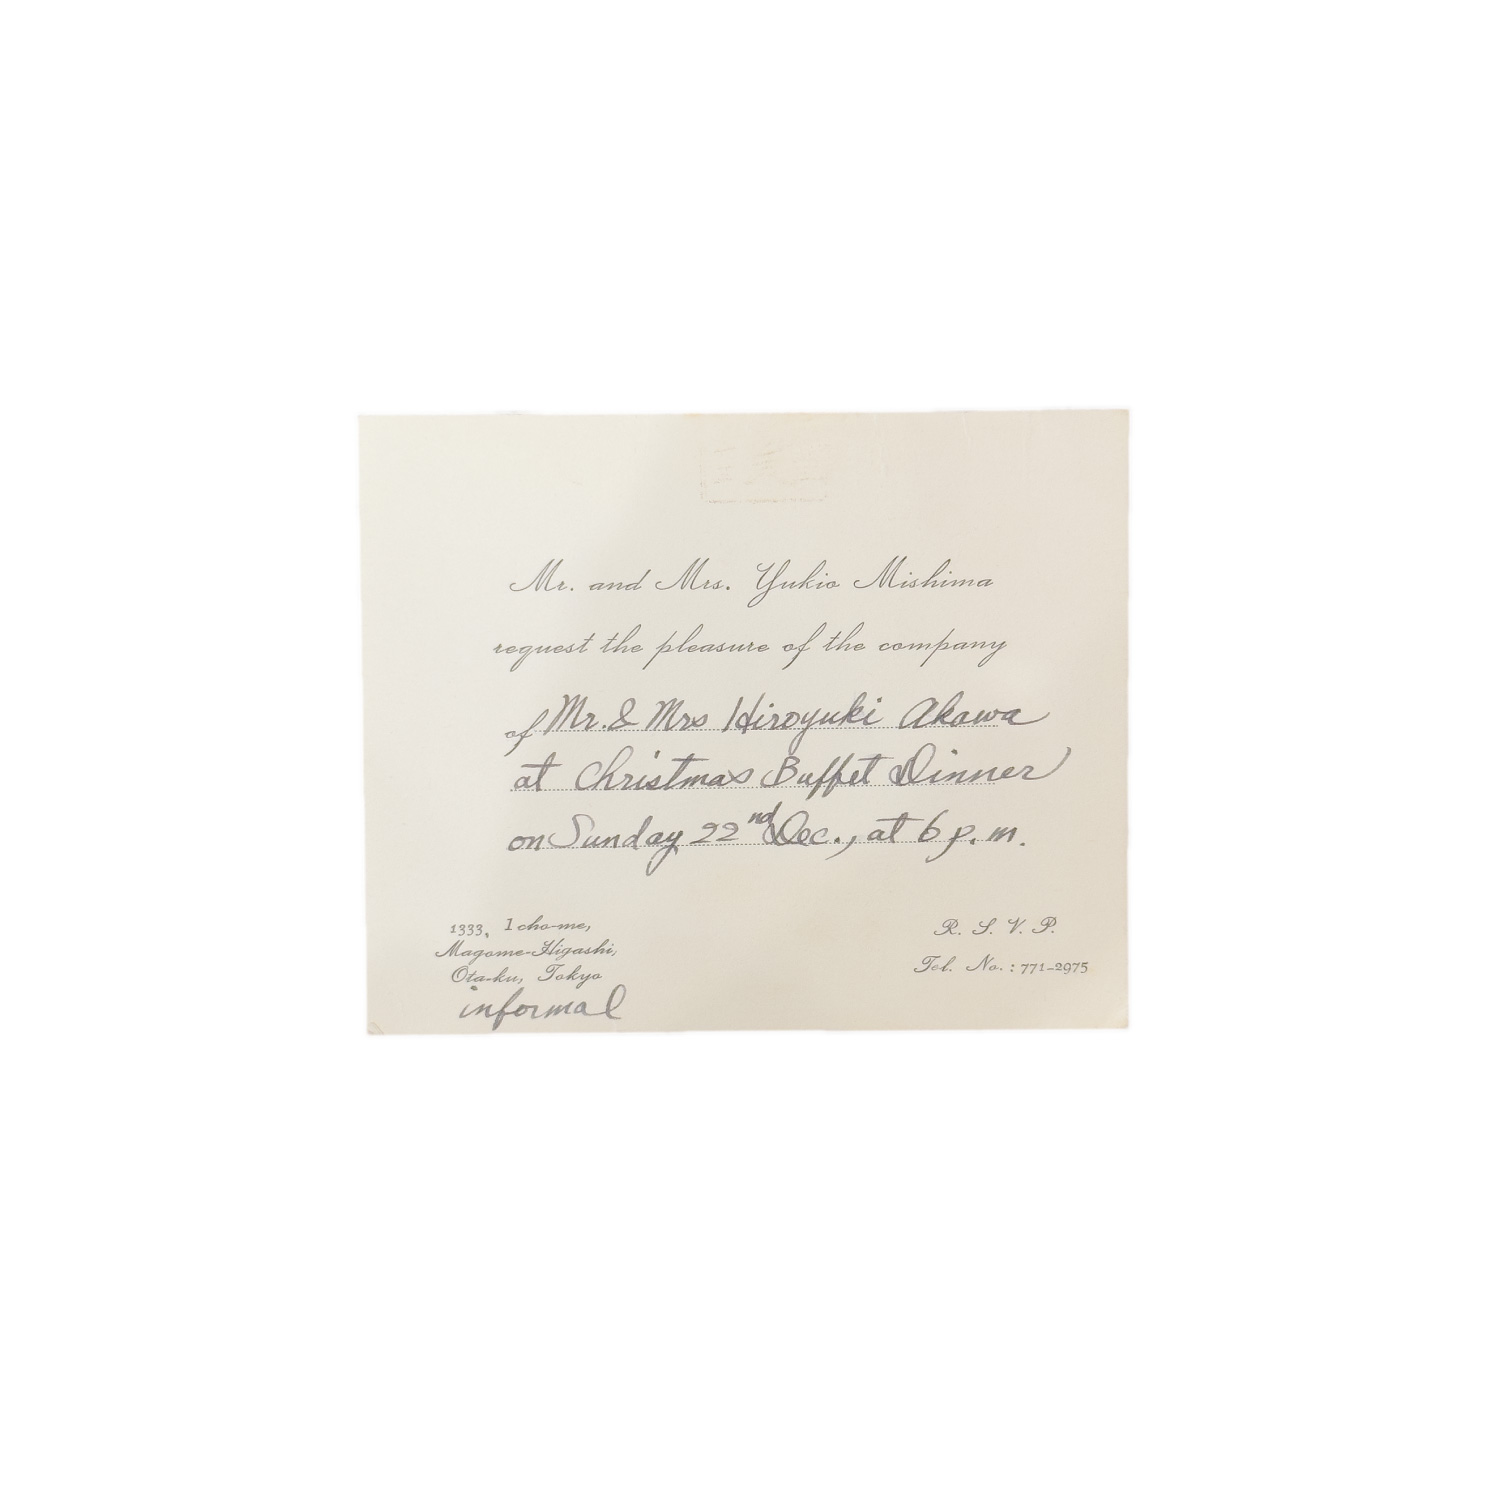 Mr. and Mrs. Yukio Mishima
request the pleasure of the company
of Mr. & Mrs Hiroyuki Akawa
at Christmas Buffet Dinner
on Sunday 22nd Dec., at 6 p.m.
1333, 1 cho-me,
Magome-Higashi,
Ota-ku, Tokyo
informal
R. S. V. P.
Tel. No.: 771-2975